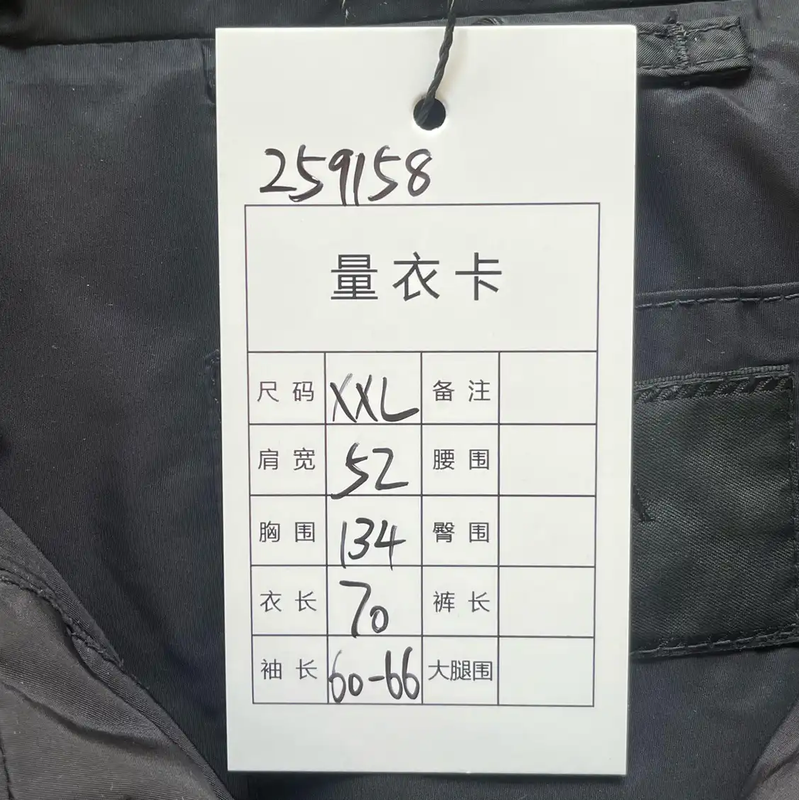 259158
量衣卡
尺码 XXL 备注
肩宽 52 腰围
胸围 134 臀围
衣长 70 裤长
袖长 60-66 大腿围